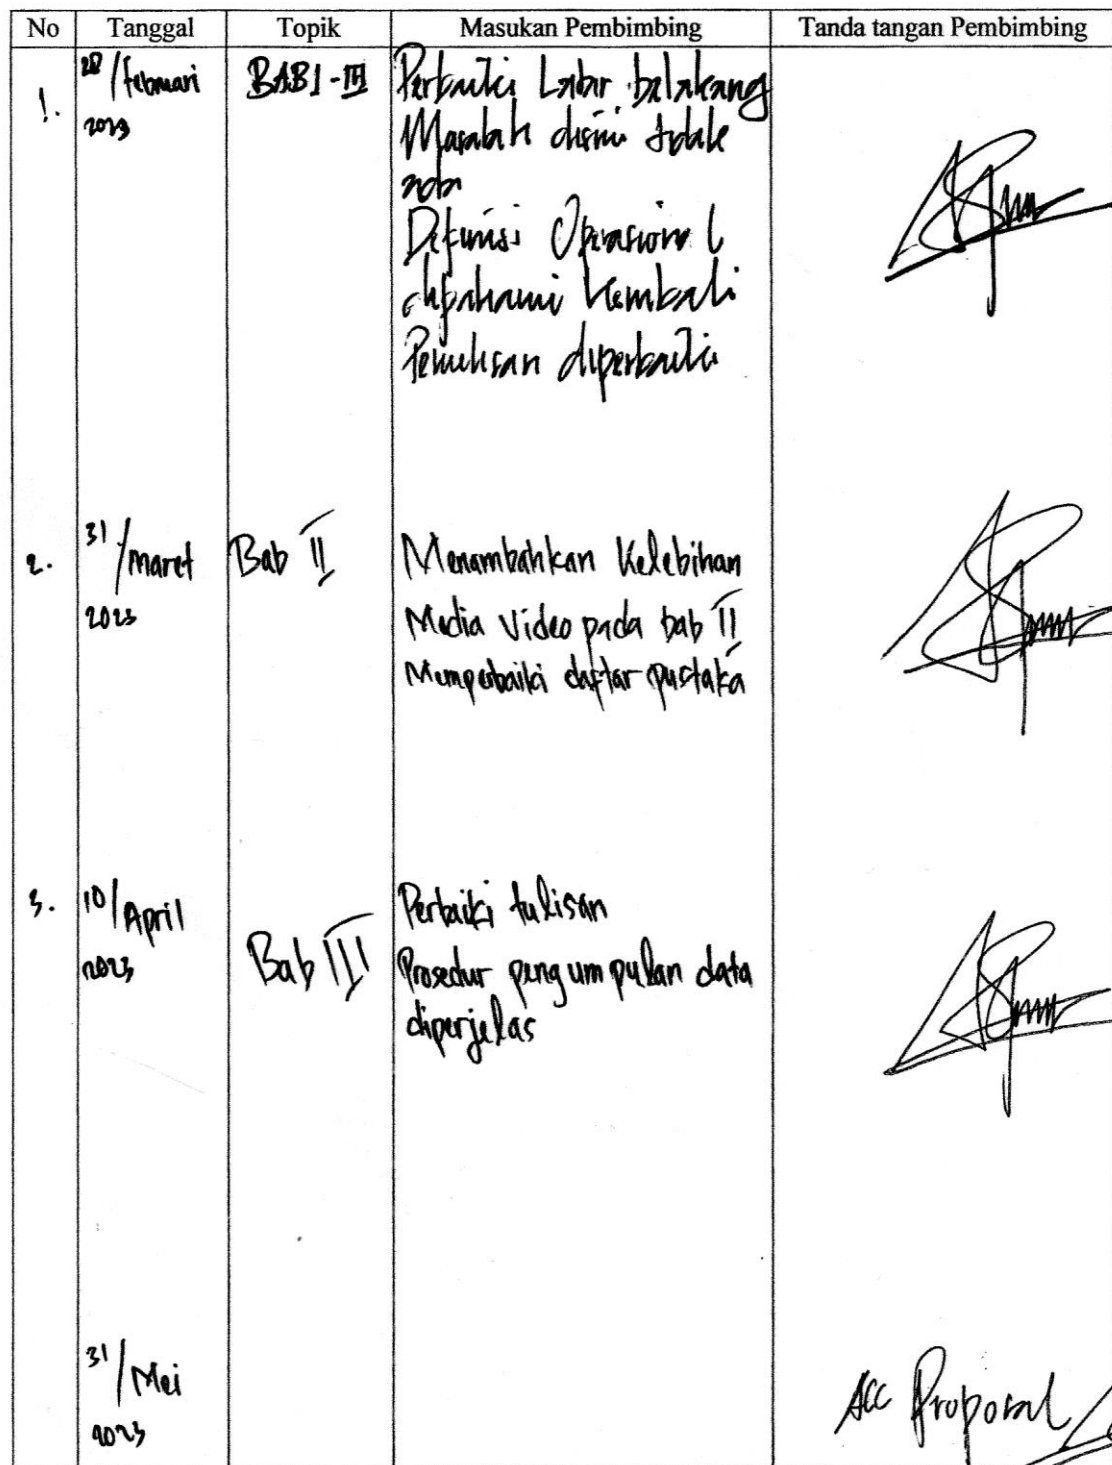 No Tanggal Topik Masukan Pembimbing Tanda tangan Pembimbing
1. 28/Februari 2023 BAB I - III Perbaiki Latar belakang
Masalah disini tidak
ada
Definisi Operasional
dipahami kembali
Penulisan diperbaiki
2. 31/maret 2023 Bab II Menambahkan Kelebihan
Media Video pada bab II
Memperbaiki daftar pustaka
3. 10/April 2023 Bab III Perbaiki tulisan
Prosedur pengumpulan data
diperjelas
31/Mei 2023 Acc Proposal